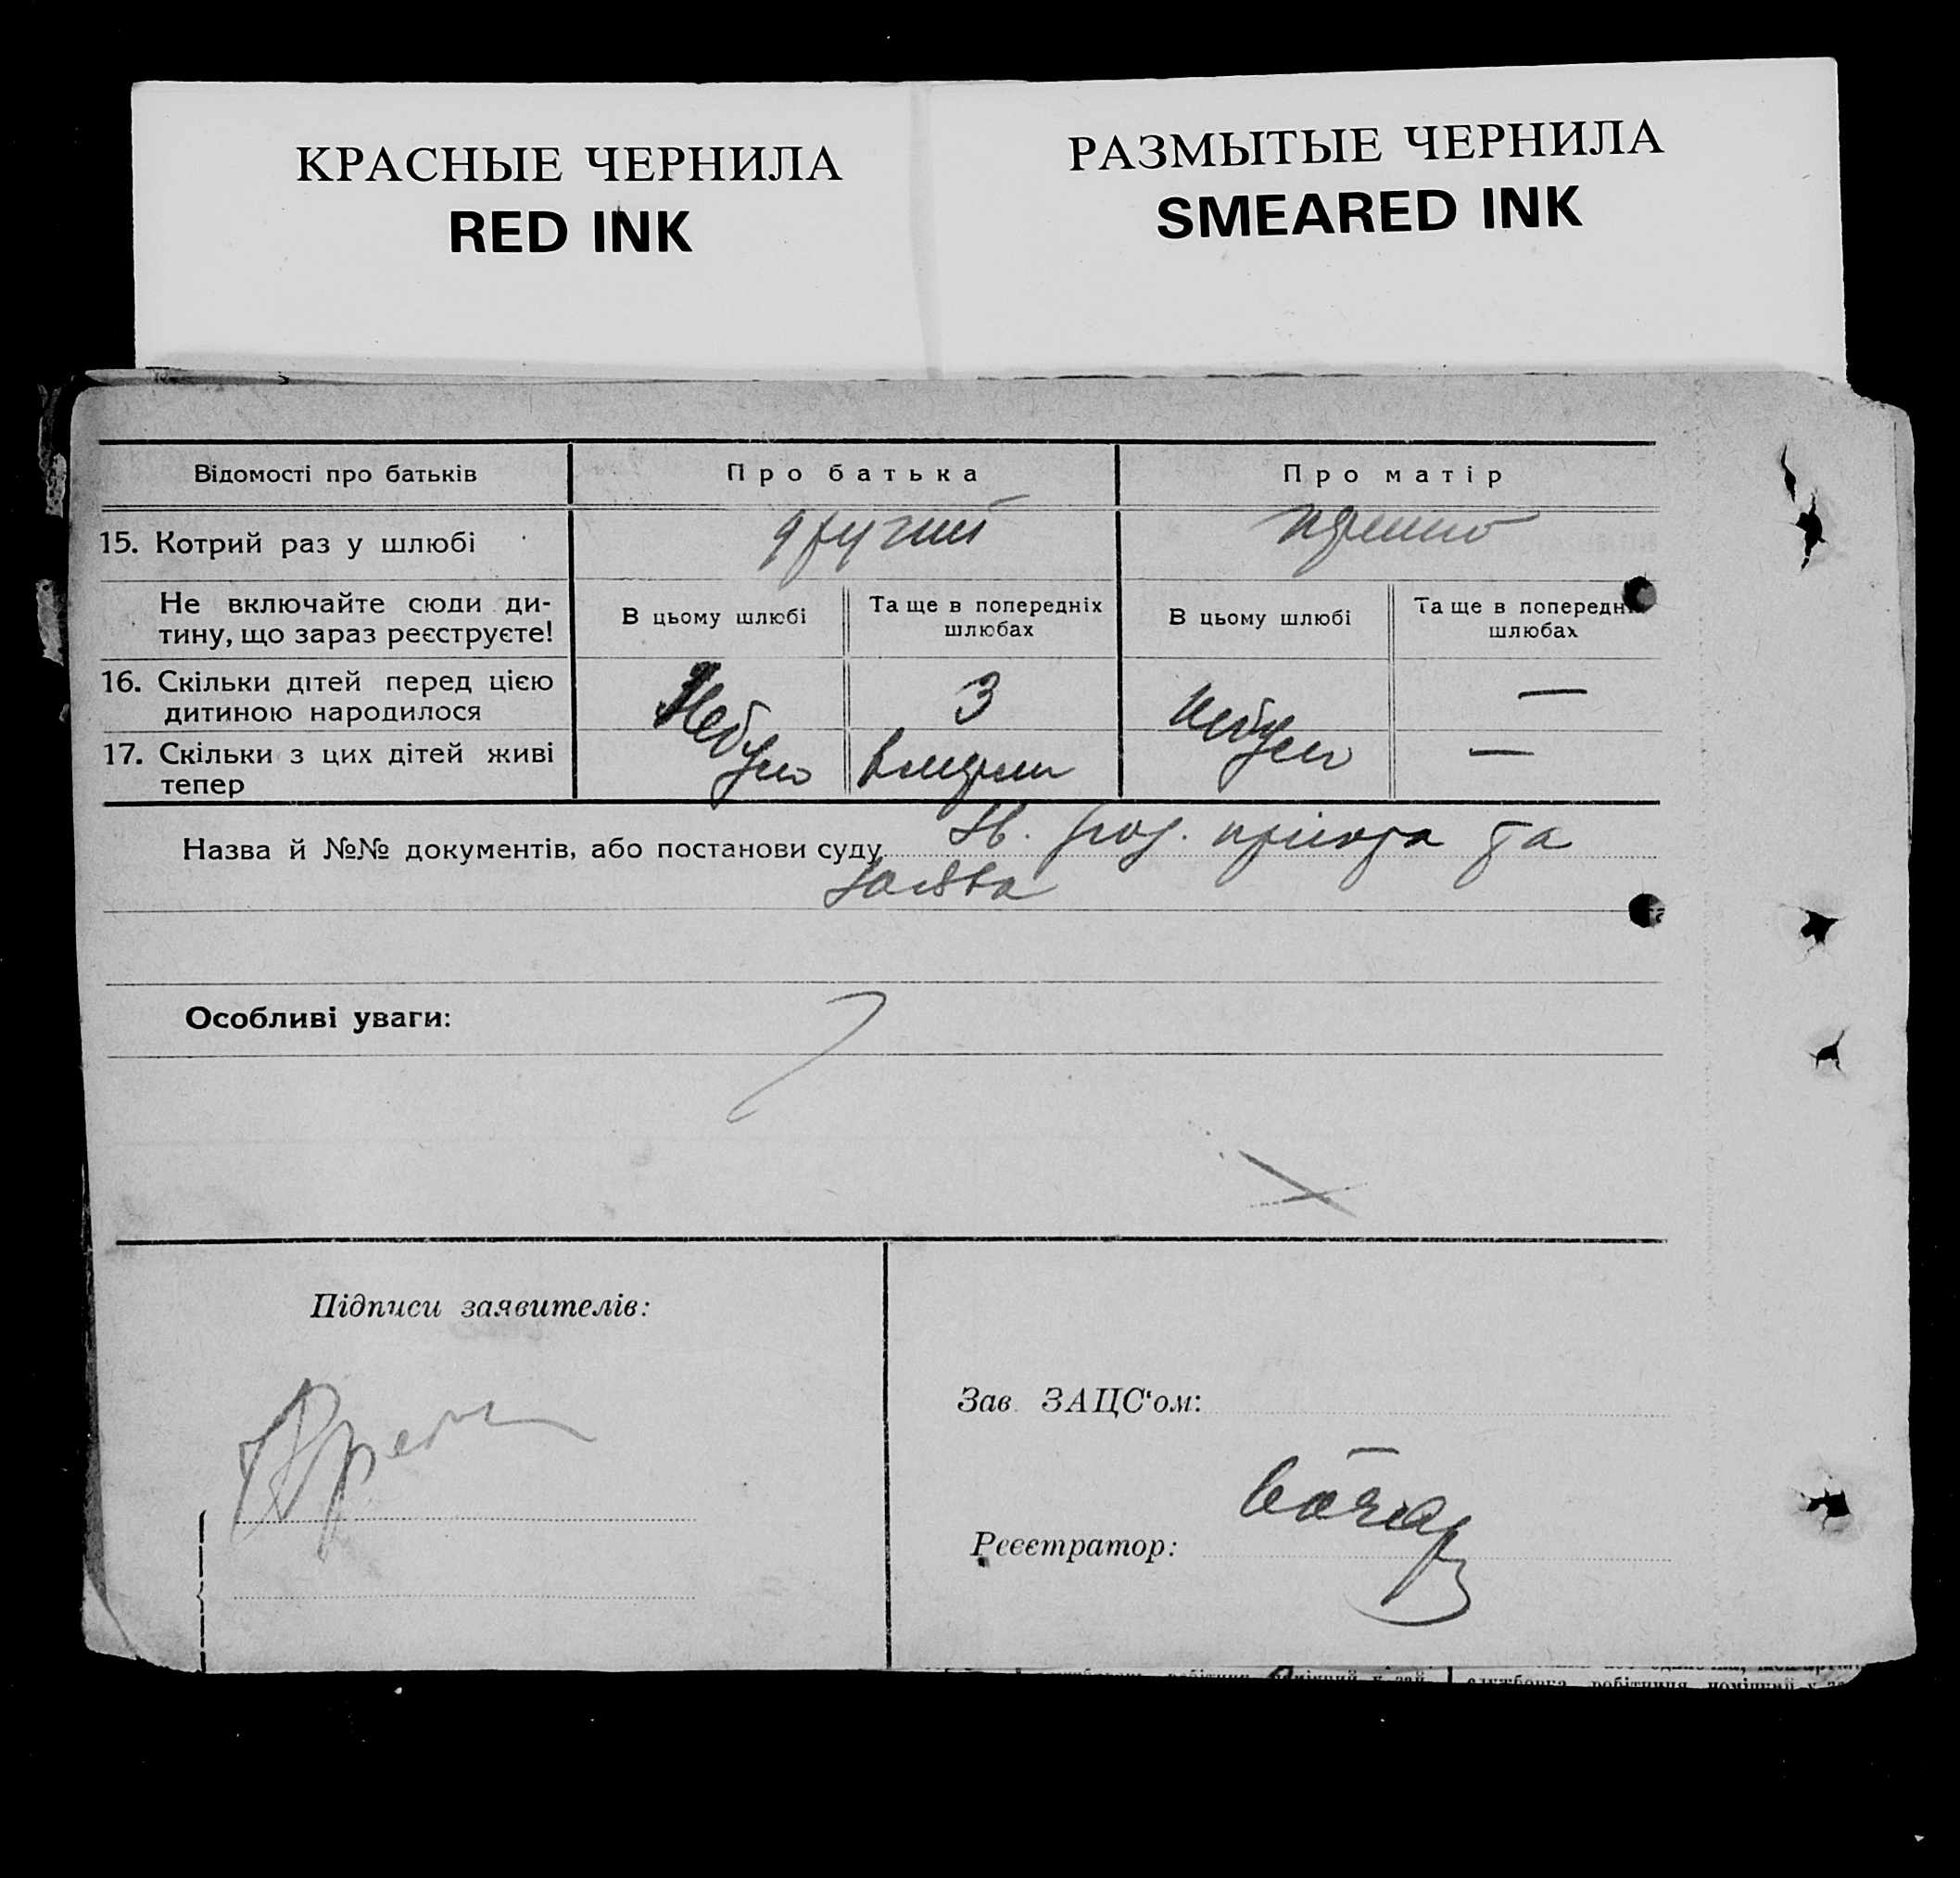 КРАСНЫЕ ЧЕРНИЛА
RED INK
РАЗМЫТЫЕ ЧЕРНИЛА
SMEARED INK
Відомості про батьків
Про батька
Про матір
15. Котрий раз у шлюбі
другий
Не включайте сюди ди-
тину, що зараз реєструєте!
В цьому шлюбі
Та ще в попередніх
шлюбах
В цьому шлюбі
Та ще в попередн
шлюбах
16. Скільки дітей перед цією
дитиною народилося
Небуло
3
небуло
—
17. Скільки з цих дітей живі
тепер
вмерли
—
Назва й №№ документів, або постанови суду
та
Заява
Особливі уваги:
Підписи заявителів:
Зав. ЗАЦС‘ом:
Реєстратор: